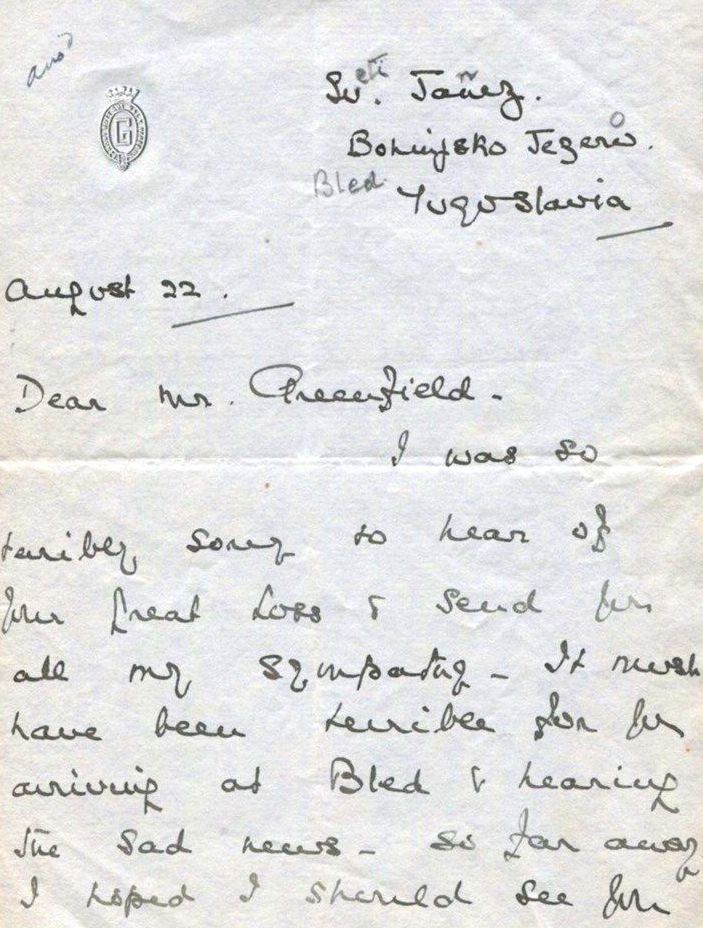 G
Sveti. Janez.
Bohinjsko Jezero.
Bled. Yugoslavia
August 22.
Dear Mr. Greenfield.
I was so
terribly sorry to hear of
your great loss & send you
all my sympathy - It must
have been terrible for you
arriving at Bled & hearing
the sad news - so far away
I hoped I should see you